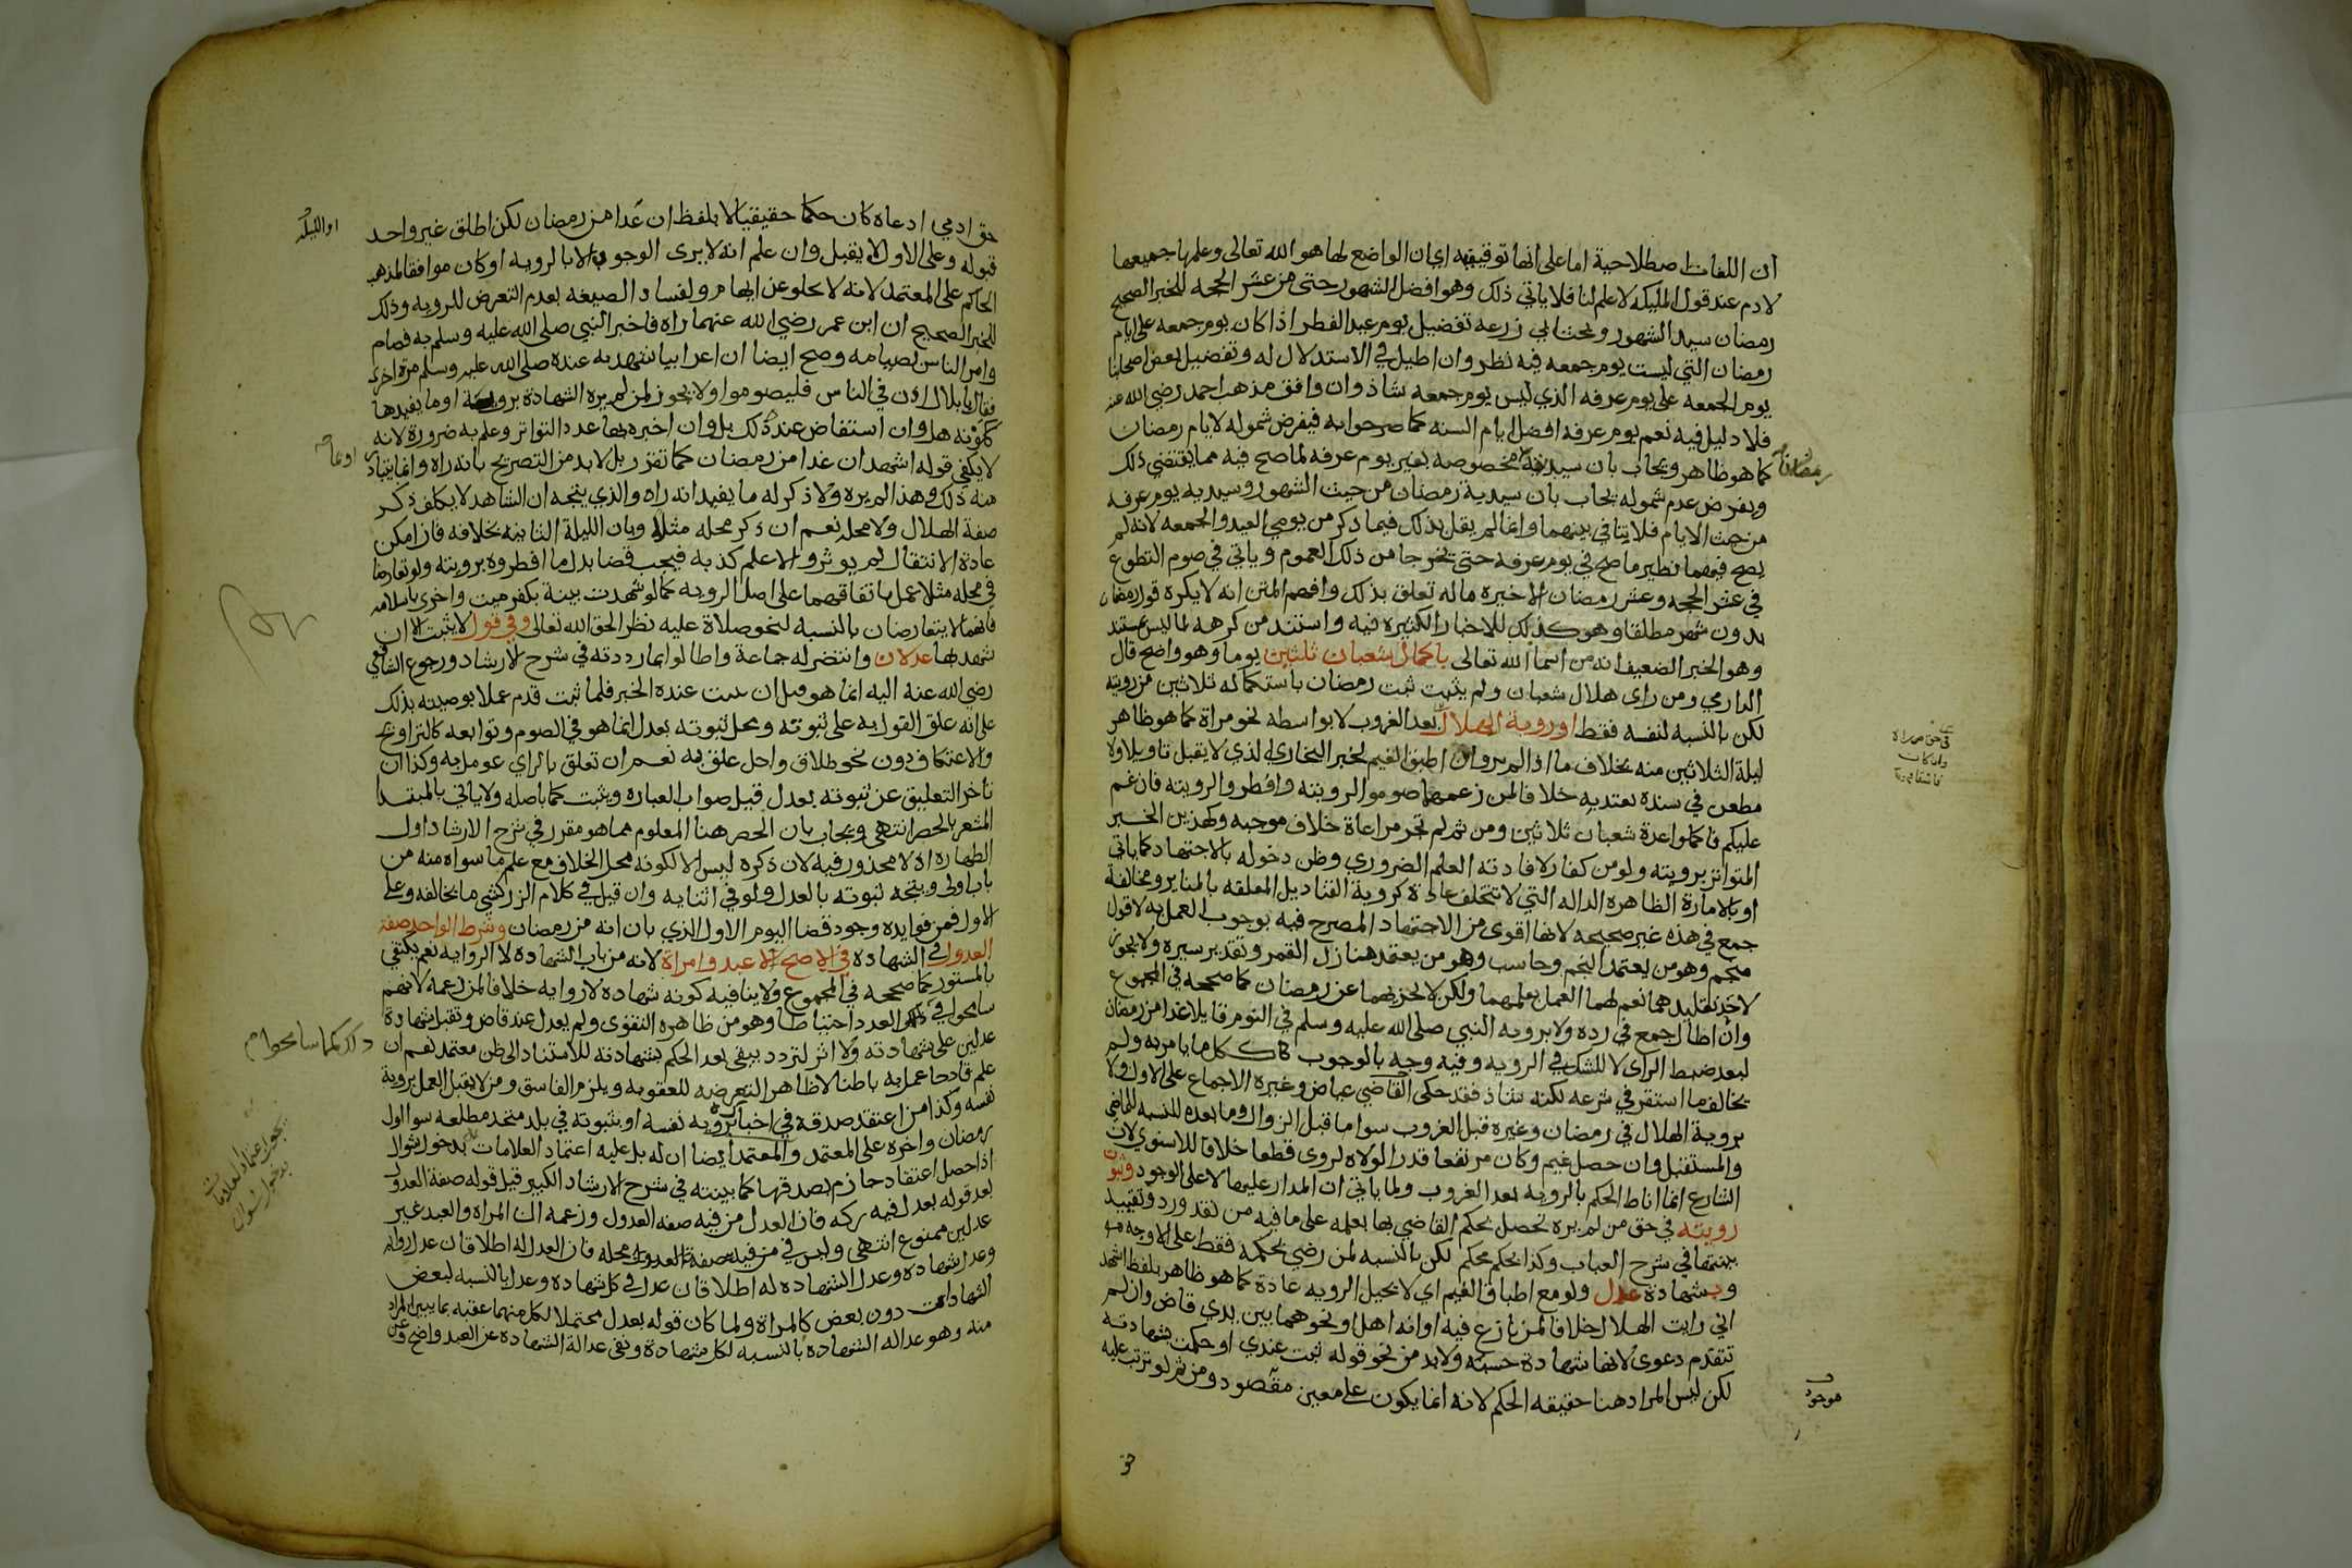 ان اللغات اصطلاحية اما على انها توقيفيه اي ان الواضع لها هو الله تعالى وعلمها جميعها
لادم عند قول المليكه لا علم لنا فلا ياتي ذلك وهو افضل الشهور حتى من عشر الحجه للخبر الصحيح
رمضان سيد الشهور وبحث ابي زرعه تفضيل يوم عيد الفطر اذا كان يوم جمعه على ايام
رمضان التي ليست يوم جمعه فيه نظر وان اطيل في الاستدلال له وتفضيل بعض اصحابنا
يوم الجمعه على يوم عرفه الذي ليس يوم جمعه شاذ وان وافق مذهب احمد رضي الله عنه
فلا دليل فيه نعم يوم عرفه افضل ايام السنه كما صرحوا به فيفرض شموله لايام رمضان
كما هو ظاهر ويجاب بان سيديته مخصوصه بغير يوم عرفه لما صح فيه مما يقتضي ذلك
وبفرض عدم شموله يجاب بان سيدية رمضان من حيث الشهور وسيديه يوم عرفه
من حيث الايام فلا يتنافي بينهما وانما لم يقل بذلك فيما ذكر من يومي العيد والجمعه لانه لم
يصح فيهما نظير ما صح في يوم عرفه حتى يخرجا من ذلك العموم وياتي في صوم التطوع
في عشر الحجه وعشر رمضان الاخيره ما له تعلق بذلك وافهم المتن انه لا يكره قول رمضان
بدون شهر مطلقا وهو كذلك للاخبار الكثيره فيه واستند من كرهه لما ليس بمستند
وهو الخبر الضعيف انه من اسما الله تعالى باكمال شعبان ثلثين يوما وهو واضح قال
الدارمي ومن راى هلال شعبان ولم يثبت ثبت رمضان باستكماله ثلاثين من رويته
لكن بالنسبه لنفسه فقط او روية الهلال بعد الغروب لا بواسطه نحو مراة كما هو ظاهر
ليلة الثلاثين منه بخلاف ما اذا لم ير وان اطبق الغيم لخبر البخاري الذي لا يقبل تاويلا ولا
مطعن في سنده يعتد به خلافا لمن زعمهما صوموا لرويته وافطروا لرويته فان غم
عليكم فاكملوا عدة شعبان ثلاثين ومن ثم لم تجز مراعاة خلاف موجبه وكهذين الخبر
المتواتر برويته ولو من كفار لافادته العلم الضروري وظن دخوله بالاجتهاد كما ياتي
او بالامارة الظاهره الداله التي لا تتخلف عادة كروية القناديل المعلقه بالمناير ومخالفة
جمع في هذه غير صحيحه لانها اقوى من الاجتهاد المصرح فيه بوجوب العمل به لا قول
منجم وهو من يعتمد النجم وحاسب وهو من يعتمد منازل القمر وتقدير سيره ولا يجوز
لاحد تقليدهما نعم لهما العمل بعلمهما ولكن لا يجزيهما عن رمضان كما صححه في المجموع
وان اطال جمع في رده ولا بروية النبي صلى الله عليه وسلم في النوم قايلا غدا من رمضان
لبعد ضبط الراى لا للشك في الرويه وفيه وجه بالوجوب ككل ما يامر به ولم
يخالف ما استقر في شرعه لكنه شاذ فقد حكى القاضي عياض وغيره الاجماع على الاول ولا
بروية الهلال في رمضان وغيره قبل الغروب سوا ما قبل الزوال وما بعده بالنسبه للماضي
والمستقبل وان حصل غيم وكان مرتفعا قدرا لولاه لروى قطعا خلافا للاسنوي لان
الشارع انما اناط الحكم بالرويه بعد الغروب ولما ياتي ان المدار عليها لا على الوجود وثبوت
رويته في حق من لم يره تحصل بحكم القاضي بها بعلمه على ما فيه من نقد ورد وتقييد
بينتها في شرح العباب وكذا بحكم محكم لكن بالنسبه لمن رضي بحكمه فقط على الاوجه فيه
وبشهادة عدل ولو مع اطباق الغيم اي لا يحيل الرويه عادة كما هو ظاهر بلفظ اشهد
اني رايت الهلال خلافا لمن نازع فيه او انه اهل او نحوهما بين يدي قاض وان لم
تتقدم دعوى لانها شهادة حسبه ولا بد من نحو قوله ثبت عندي او حكمت بشهادته
لكن ليس المراد هنا حقيقه الحكم لانه انما يكون على معين مقصود ومن ثم لو ترتب عليه
حق
رمضان
موجود
حق ادمي ادعاه كان حكما حقيقيا لا بلفظ ان غدا من رمضان لكن اطلق غير واحد
قبوله وعلى الاول لا يقبل وان علم انه لا يرى الوجوب الا بالرويه او كان موافقا لمذهب
الحاكم على المعتمد لانه لا يخلو عن ايهام ولفساد الصيغه بعدم التعرض للرويه وذلك
للخبر الصحيح ان ابن عمر رضي الله عنهما راه فاخبر النبي صلى الله عليه وسلم به فصام
وامر الناس بصيامه وصح ايضا ان اعرابيا شهد به عنده صلى الله عليه وسلم مرة اخرى
فقال يا بلال اذن في الناس فليصوموا ولا يجوز لمن لم يره الشهادة برويته او ما يفيدها
ككونه هل وان استفاض عنده ذلك بل وان اخبره بها عدد التواتر وعلم به ضرورة لانه
لا يكفي قوله اشهد ان غدا من رمضان كما تقرر بل لا بد من التصريح بانه راه وانما يتبادر
منه ذلك وهذا لم يره ولا ذكر له ما يفيد انه راه والذي يتجه ان الشاهد لا يكلف ذكر
صفة الهلال ولا محله نعم ان ذكر محله مثلا وبان الليلة الثانيه بخلافه فان امكن
عادة الانتقال لم يوثر والا علم كذبه فيجب قضا بدل ما افطروه برويته ولو تعارضا
في محله مثلا عمل باتفاقهما على اصل الرويه كما لو شهدت بينة بكفر ميت واخرى باسلامه
فانهما لا يتعارضان بالنسبه لنحو صلاة عليه نظرا لحق الله تعالى وفي قول لا يثبت الا ان
شهد بها عدلان وانتصر له جماعة واطالوا بما رددته في شرح الارشاد ورجوع الشافعي
رضي الله عنه اليه انما هو قبل ان يثبت عنده الخبر فلما ثبت قدم عملا بوصيته بذلك
على انه علق القول به على ثبوته ومحل ثبوته بعدل انما هو في الصوم وتوابعه كالتراويح
والاعتكاف دون نحو طلاق واجل علق به نعم ان تعلق بالراي عومل به وكذا ان
تاخر التعليق عن ثبوته بعدل قيل صواب العباره ويثبت كما باصله ولا ياتي بالمبتدا
المشعر بالحصر انتهى ويجاب بان الحصر هنا المعلوم مما هو مقرر في شرح الارشاد اول
الطهاره اذ لا محذور فيه لان ذكره ليس الا لكونه محل الخلاف مع علم ما سواه منه من
باب اولى ويتجه ثبوته بالعدل ولو في اثنايه وان قيل في كلام الزركشي ما يخالفه وعلى
الاول فمن فوايده وجود قضا اليوم الاول الذي بان انه من رمضان وشرط الواحد صفة
العدول في الشهادة في الاصح لا عبد وامراة لانه من باب الشهاده لا الروايه نعم يكتفي
بالمستور كما صححه في المجموع ولا ينافيه كونه شهاده لا روايه خلافا لمن زعمه لانهم
سامحوا في العدد احتياطا وهو من ظاهره التقوى ولم يعدل عند قاض وتقبل شهادة
عدلين على شهادته ولا اثر لتردد يبقى بعد الحكم بشهادته للاستناد الى ظن معتمد نعم ان
علم قادحا عمل به باطنا لا ظاهرا لتعرضه للعقوبه ويلزم الفاسق ومن لا يقبل العمل بروية
نفسه وكذا من اعتقد صدقه في اخباره بروية نفسه او بثبوته في بلد متحد مطلعه سوا اول
رمضان واخره على المعتمد والمعتمد ايضا ان له بل عليه اعتماد العلامات بدخول شوال
اذا حصل اعتقاد جازم بصدقها كما بينته في شرح الارشاد الكبير قيل قوله صفة العدول
بعد قوله بعدل فيه ركه فان العدل من فيه صفة العدول وزعمه ان المراه والعبد غير
عدلين ممنوع انتهى وليس في من فيه صفة العدول في محله فان العدل له اطلاقان عدل روايه
وعدل شهاده وعدل الشهاده له اطلاقان عدل في كل شهاده وعدل بالنسبه لبعض
الشهادات دون بعض كالمراة ولما كان قوله بعدل محتملا لكل منهما عقبه بما يبين المراد
منه وهو عداله الشهاده بالنسبه لكل شهادة ونفي عدالة الشهادة عن العبد واضح وعن
او الليله